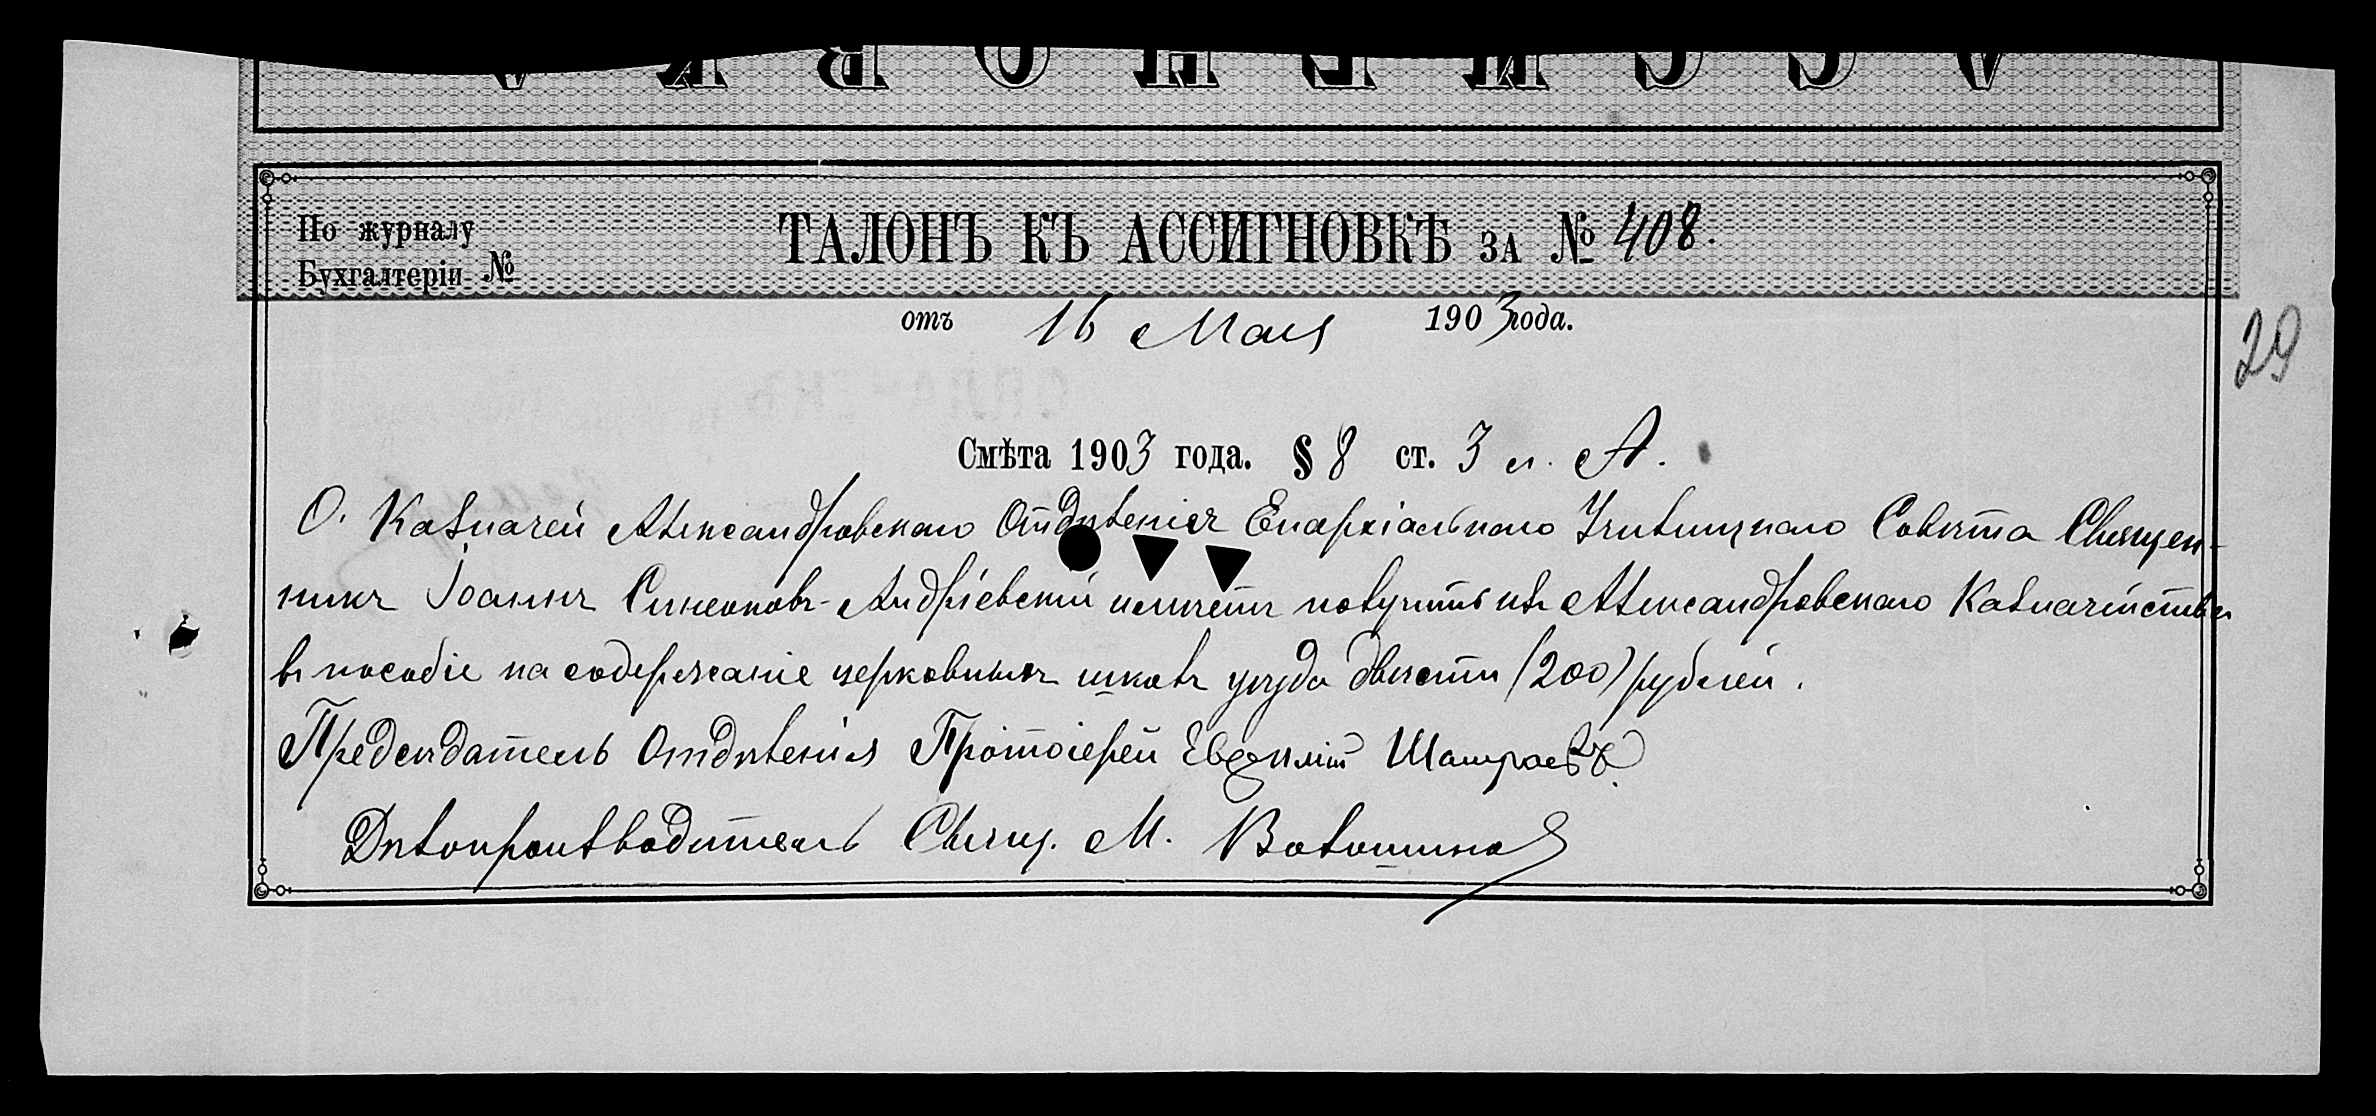 АССИГНОВКА
По журналу
Бухгалтеріи №
ТАЛОНЪ КЪ АССИГНОВКѢ ЗА № 408.
отъ 16 Мая 1903 года.
29
Смѣта 1903 года. § 8 ст. 3 л. А.
О. Казначей Александровскаго Отдѣленія Епархіальнаго Училищнаго Совѣта Священ-
никъ Іоаннъ Симеоновъ-Андріевскій имѣетъ получить изъ Александровскаго Казначейства
въ пособіе на содержаніе церковныхъ школъ уѣзда двѣсти (200) рублей.
Предсѣдатель Отдѣленія Протоіерей
Дѣлопроизводитель Свящ. М. Волошинов